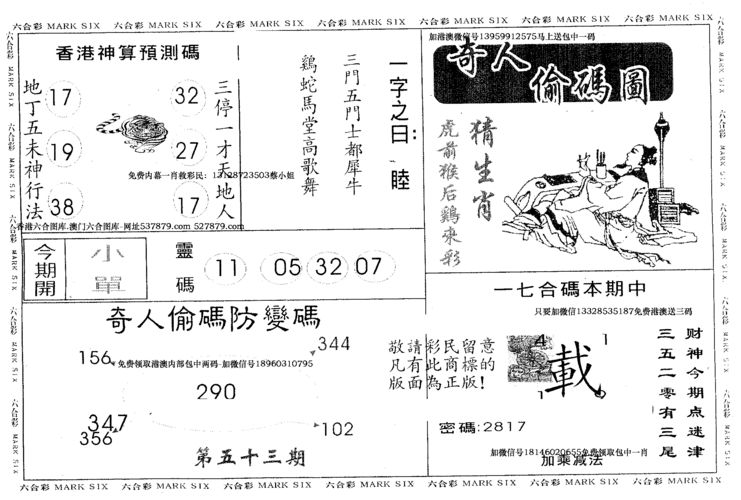 六合彩 MARK SIX 六合彩 MARK SIX 六合彩 MARK SIX 六合彩 MARK SIX 六合彩 MARK SIX 六合彩 MARK SIX 六合彩 MARK SIX
香港神算預測碼
地丁五未神行法
17
19
38
32
27
17
三停一才天地人
免费内幕一肖救彩民：13128723503蔡小姐
香港六合图库-澳门六合图库-网址537879.com 527879.com
一字之曰：睦
三門五門士都犀牛
鷄蛇馬堂高歌舞
加港澳微信号13959912575马上送包中一码
奇人偷碼圖
猜生肖
虎前猴后鷄來彩
今期開
小單
靈碼
11
05
32
07
一七合碼本期中
只要加微信13328535187免费港澳送三码
奇人偷碼防變碼
344
156
免费领取港澳内部包中两码-加微信号18960310795
290
347
356
102
第五十三期
敬請彩民留意
凡有此商標的
版面為正版！
4
1
載
1
财神今期点迷津
三五二零有三尾
密碼:2817
加微信号18146020655免费领取包中一肖
加乘减法
六合彩 MARK SIX 六合彩 MARK SIX 六合彩 MARK SIX 六合彩 MARK SIX 六合彩 MARK SIX 六合彩 MARK SIX 六合彩 MARK SIX